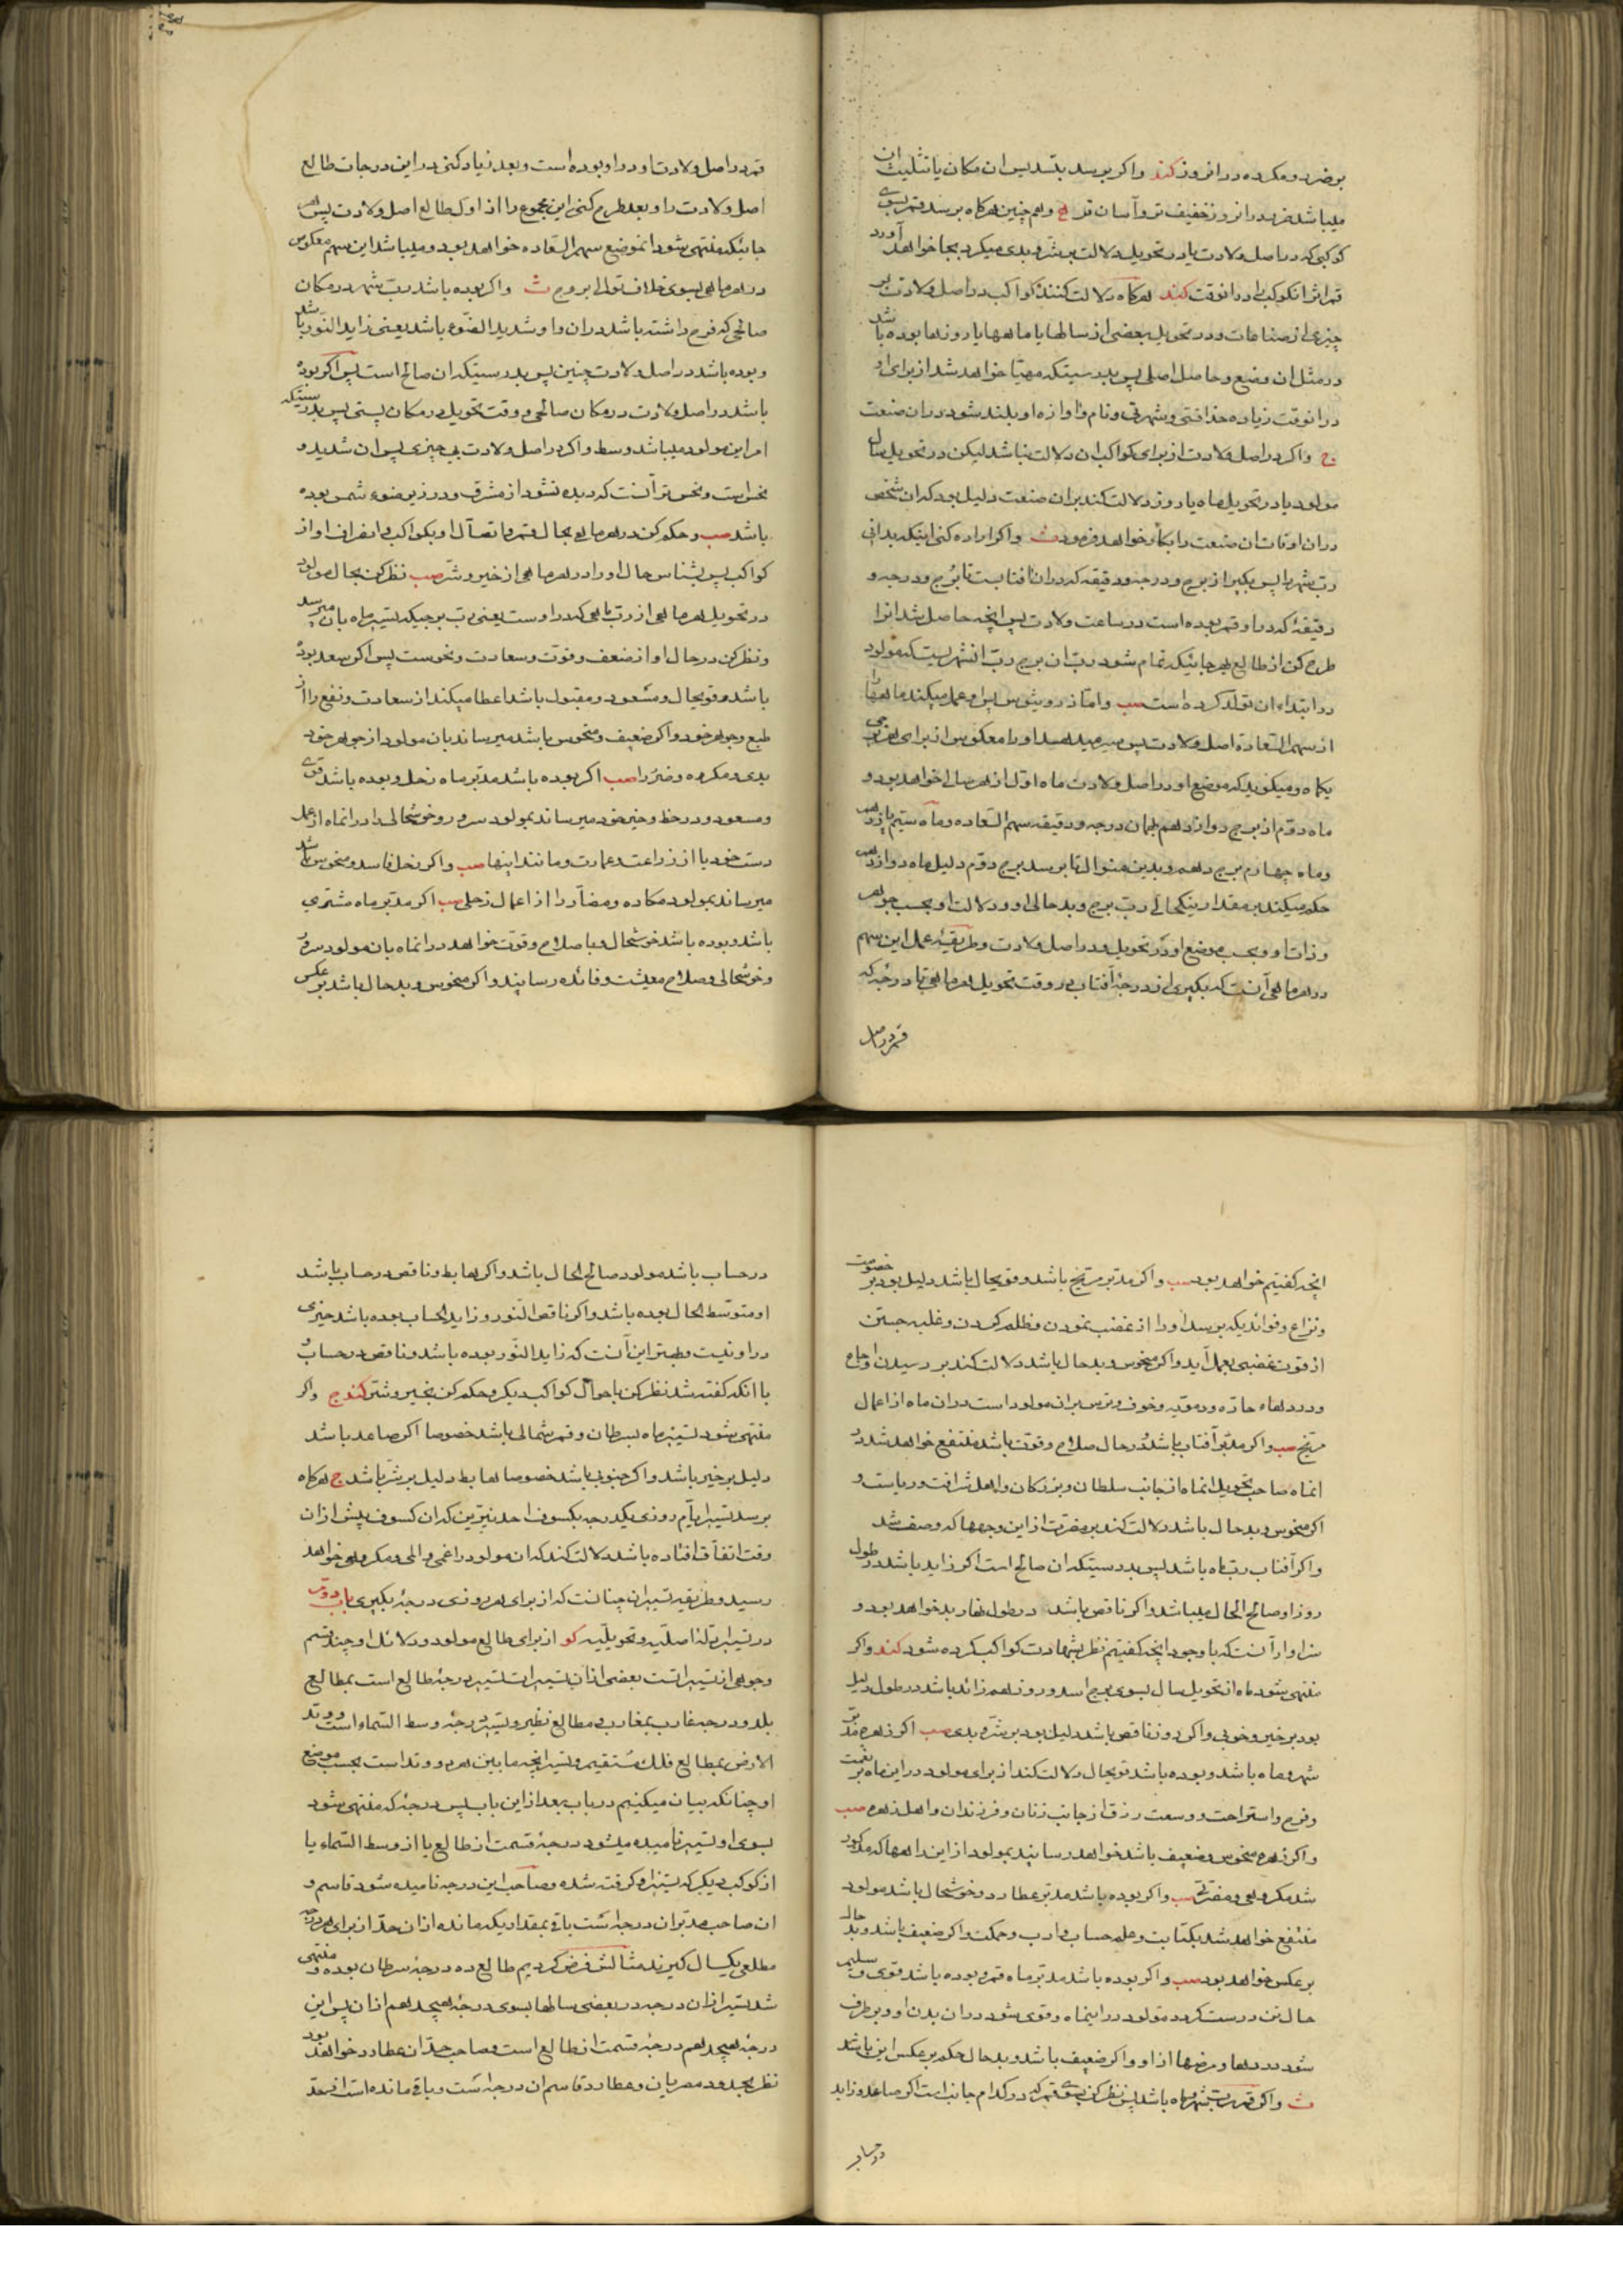 بر ضرر و مکروه در انروز کند واکر برسد بتسدیس ان مکان یا تثلیث ان
میباشد ضرر در انروز خفیف تر و آسان تر و هم چنین هرکاه برسد قمر بسوی
کوکبی که در اصل ولادت یا در تحویل دلالت بر شر و بدی میکرد بجا خواهد آورد
قمر اثر انکوکب را در انوقت کند هرکاه دلالت کنند کواکب در اصل ولادت بر
چیزی از صناعات و در تحویل بعضی از سالها یا ماهها یا روزها بوده باشد
در مثل ان وضع و حاصل اصلی پس بدرستیکه مهیا خواهد شد از برای او
در انوقت زیاده حذاقتی و شهرتی و نام و اوازه او بلند شود در ان صنعت
واکر در اصل ولادت از برای کواکب ان دلالت نباشد لیکن در تحویل سال
مولود یا در تحویل ماه یا روز دلالت کند بران صنعت دلیل بود که ان شخص
در ان اوقات ان صنعت را بکار خواهد فرمود ث واکر اراده کنی اینکه بدانی
رب شهر را پس بکیر از برج و درجه و دقیقه که در ان افتابست تا برج و درجه و
دقیقهٔ که در او قمر بوده است در ساعت ولادت پس انچه حاصل شد انرا
طرح کن از طالع بهر جائیکه تمام شود رب ان برج رب انشهریست که مولود
در ابتداء ان تولد کرده است صب و اما ذروثیوس پس او عمل میکند ماهها را
از سهم السعادة اصل ولادت پس سیر میدهد او را معکوس از برای هر برجی
یکماه و میکوید که موضع او در اصل ولادت ماه اول از هر سالی خواهد بود و
ماه دوم از برج دوازدهم بهمان درجه و دقیقه سهم السعاده و ماه سیم یازدهم
و ماه چهارم برج دهم و بدین منوال تا برسد برج دوم دلیل ماه دوازدهم
حکم میکند بمقدار نیکحالی رب برج و بد حالی او و دلالت او بحسب جوهر
و ذات او و بحسب موضع او در تحویل و در اصل ولادت و طریقهٔ عمل این سهم
در هر ماهی آنست که بکیری از درجهٔ آفتاب در وقت تحویل هر ماهی تا درجهٔ که
قمر در اصل
قمر در اصل ولادت او در او بوده است و بعد زیاد کنی در این درجات طالع
اصل ولادت را و بعد طرح کنی این مجموع را از اول طالع اصل ولادت پس بهر
جائیکه منتهی شود انموضع سهم السعاده خواهد بود و میباشد این سهم معکوس
در هر ماهی بسوی خلاف توالی بروج ث واکر بوده باشد رب شهر در مکان
صالحی که فرح داشته باشد در ان و او شدید الضوء باشد یعنی زاید النور باشد
و بوده باشد در اصل ولادت چنین پس بدرستیکه ان صالح است پس اکر بوده
باشد در اصل ولادت در مکان صالحی و وقت تحویل در مکان پستی پس بدرستیکه
امر این مولود میباشد وسط واکر در اصل ولادت بی چیزی پس ان شدید و
نحس است و نحس تر آنست که دیده نشود از مشرق و در زیر ضوء شمس بوده
باشد صب و حکم کن در هر ماهی بحال قمر و اتصال او بکواکب و انصراف او از
کواکب پس بشناس حال او را در هر ماهی از خیر و شر صب نظر کن بحال مولود
در تحویل هر ماهی از رب ماهی که در اوست یعنی رب برجیکه تسییر ماه بان میرسد
و نظر کن در حال او از ضعف و قوت و سعادت و نحوست پس اکر سعد بوده
باشد و قویحال و مسعود و مقبول باشد اعطا میکند از سعادت و نفع را از
طبع و جوهر خود و اکر ضعیف و منحوس باشد میرساند بان مولود از جوهر خود
بدی و مکروه و ضرر را صب اکر بوده باشد مدبر ماه زحل و بوده باشد قوی
و مسعود و در حظ و خیر خود میرساند بمولود سرور و خوشحالی را در انماه از عمل
دست خود یا از زراعت و عمارت و مانند اینها صب واکر زحل فاسد و منحوس باشد
میرساند بمولود مکاره و مضار را از اعمال زحلی صب اکر مدبر ماه مشتری
باشد و بوده باشد خوشحال و با صلاح و قوت خواهد در انماه بان مولود سرور
و خوشحالی و صلاح معیشت و فائده رسانید واکر منحوس و بد حال باشد بر عکس
انچه کفتیم خواهد بود صب واکر مدبر مریخ باشد و قویحال باشد دلیل بود بر خصومت
و نزاع و فوائدیکه برسد او را از غضب نمودن و ظلم کردن و غلبه جستن
از قوت غضبی بعمل آید واکر منحوس و بد حال باشد دلالت کند بر رسیدن اوجاع
و دردهاء حاره و دمویه و خوف و ترس بران مولود است در ان ماه از اعمال
مریخ صب واکر مدبر آفتاب باشد و در حال صلاح و قوت باشد منتفع خواهد شد در
انماه صاحب تحویل انماه از جانب سلطان و بزرکان و اهل شرافت و ریاست و
اکر منحوس و بد حال باشد دلالت کند بر مضرت از این وجهها که وصف شد
واکر آفتاب رب ماه باشد پس بدرستیکه ان صالح است اکر زاید باشد در طول
روز او صالح الحال میباشد واکر ناقص باشد در طول نهار بد خواهد بود و
سزاوار آنست که با وجود انچه کفتیم نظر بشهادت کواکب کرده شود کند واکر
منتهی شود ماه از تحویل سال بسوی برج اسد و روز هم زائد باشد در طول دلیل
بود بر خیر و خوبی واکر روز ناقص باشد دلیل بود بر شر و بدی صب اکر زهره مدبر
شهر و ماه باشد و بوده باشد قویحال دلالت کند از برای مولود در این ماه بر نعمت
و فرح و استراحت و وسعت رزق از جانب زنان و فرزندان و اهل زهره صب
واکر زهره منحوس و ضعیف باشد خواهد رسانید بمولود از این راهها که مذکور
شد مکروهی و مضرتی صب واکر بوده باشد مدبر عطارد و خوشحال باشد مولود
منتفع خواهد شد بکتابت و علم حساب و ادب و حکمت واکر ضعیف باشد و بد حال
بر عکس خواهد بود صب واکر بوده باشد مدبر ماه قمر و بوده باشد قوی و سلیم
حال تن درست کردد مولود در اینماه و قوی شود در ان بدن او و برطرف
شود دردها و مرضها از او واکر ضعیف باشد و بد حال حکم بر عکس این باشد
ث واکر قمر رب شهر و ماه باشد پس نظر کن بسوی قمر که در کدام جانب است اکر صاعد و زاید
در حساب
در حساب باشد مولود صالح الحال باشد واکر هابط و ناقص در حساب باشد
او متوسط الحال بوده باشد واکر ناقص النور و زاید الحساب بوده باشد خیری
در او نیست و بهتر این آنست که زاید النور بوده باشد و ناقص در حساب و
با انکه کفته شد نظر کن باحوال کواکب دیکر و حکم کن بخیر و شر کندج واکر
منتهی شود تسییر ماه بسرطان و قمر شمالی باشد خصوصا اکر صاعد باشد
دلیل بر خیر باشد واکر جنوبی باشد خصوصا هابط دلیل بر شر باشد ج هرکاه
برسد تسییر ایام روزی یکدرجه بکسوف احد نیرین که ان کسوف پیش از ان
وقت اتفاق افتاده باشد دلالت کند که ان مولود را غمی و المی و مکروهی خواهد
رسید و طریقه تسییر ان چنانست که از برای هر روزی درجهٔ بکیری باب دوم
در تسییرات اصلیه و تحویلیه کو از برای طالع مولود و دلائل او چند قسم
وجوهی از تسییراتست بعضی از ان تسییرات تسییر درجهٔ طالع است بمطالع
بلد و درجه غارب بمغارب و مطالع نظیر و تسییر درجهٔ وسط السماء است و وتد
الارض بمطالع فلک مستقیم و تسییر انچه مابین هر دو وتد است بحسب موضع
او چنانکه بیان میکنیم در باب بعد از این باب پس درجهٔ که منتهی شود
بسوی او تسییر نامیده میشود درجهٔ قسمت از طالع یا از وسط السماء یا
از کوکب دیکر که تسییر او کرفته شده و صاحب این درجه نامیده شود قاسم و
ان صاحب مدبر ان درجه است باقی بمقداریکه مانده از ان حد از برای هر درجه
مطلعی یکسال کیرند مثالش فرض کردیم طالع ده درجهٔ سرطان بوده و منتهی
شد تسییر از ان درجه در بعضی سالها بسوی درجهٔ هیجدهم از ان پس این
درجهٔ هیجدهم درجهٔ قسمت از طالع است و صاحب حد ان عطارد خواهد بود
نظر بحدود مصریان و عطارد قاسم ان درجه است و باقی مانده است از حد